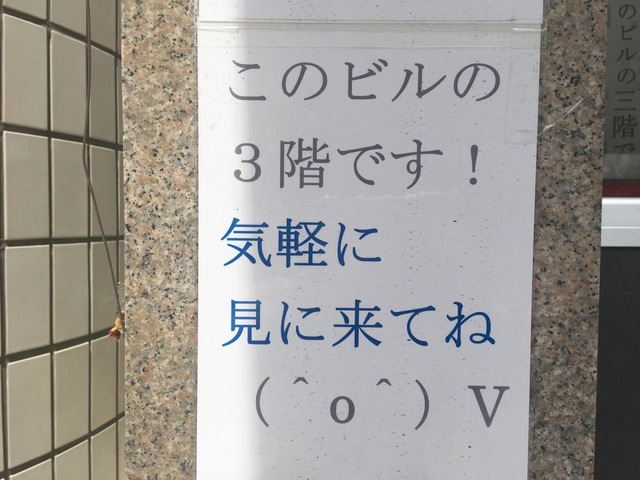 このビルの
３階です！
気軽に
見に来てね
（＾o＾）V
のビルの三階で